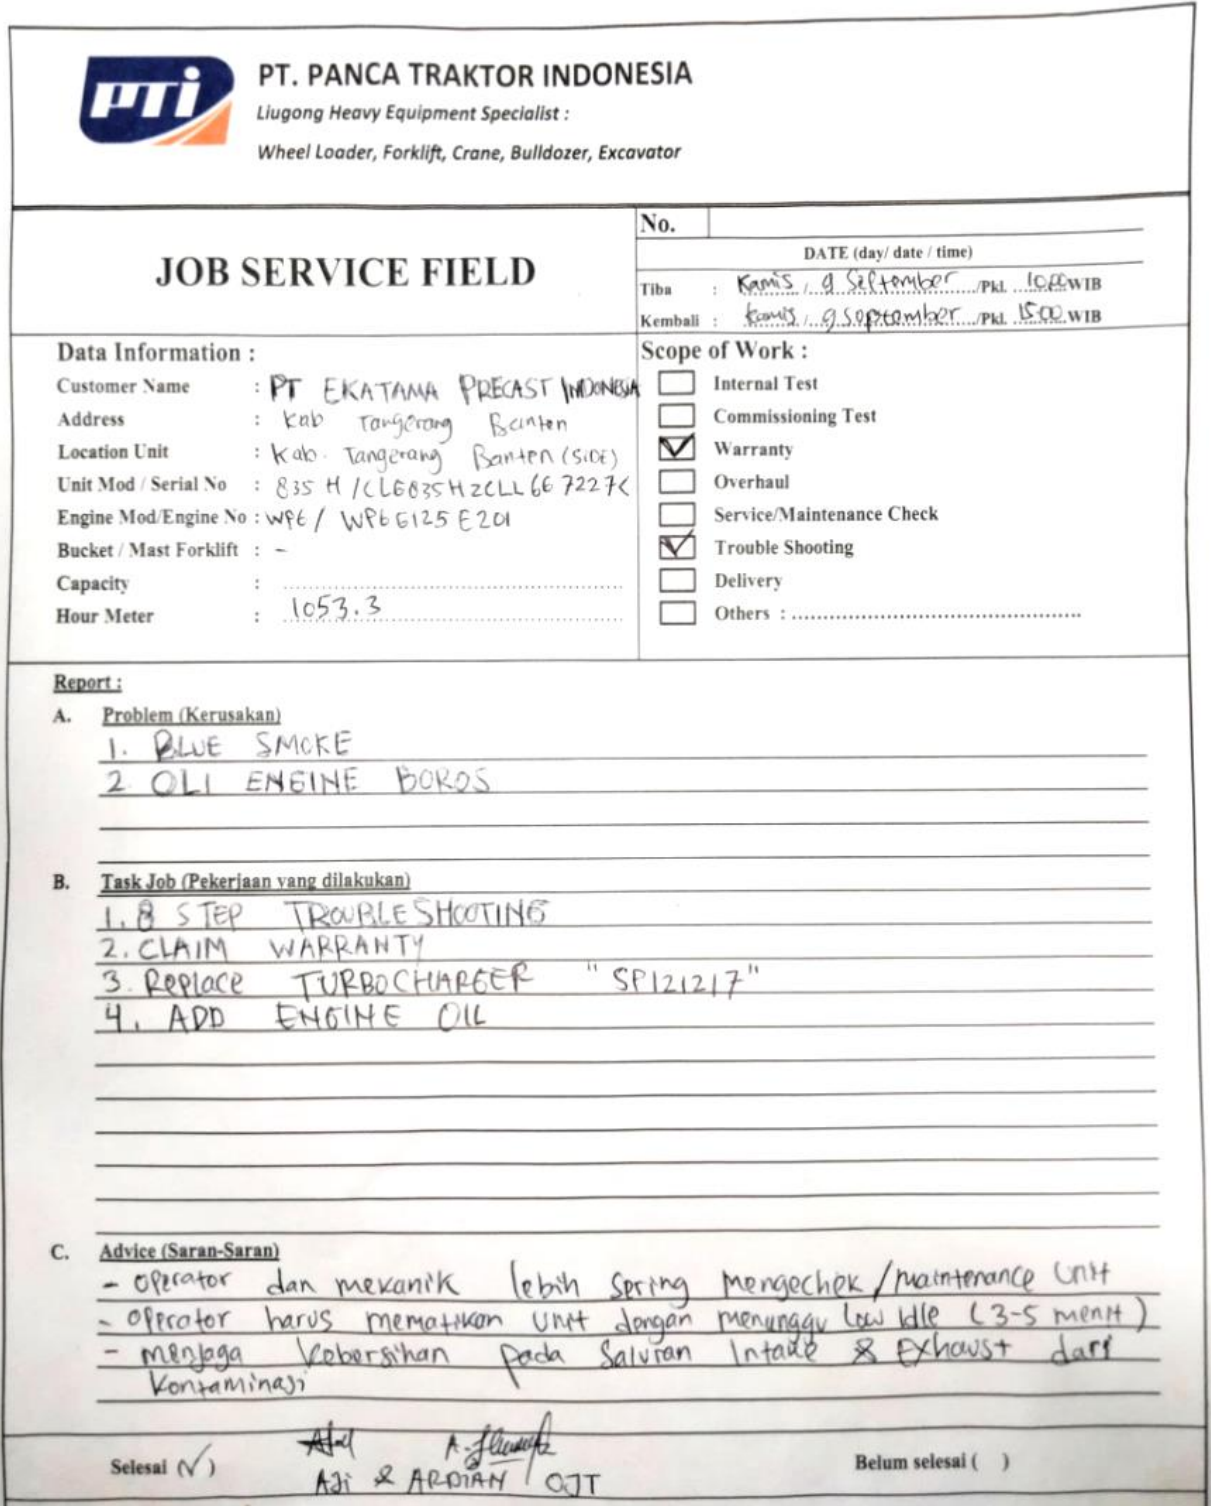 PTi
PT. PANCA TRAKTOR INDONESIA
Liugong Heavy Equipment Specialist :
Wheel Loader, Forklift, Crane, Bulldozer, Excavator
JOB SERVICE FIELD
No.
DATE (day/ date / time)
Tiba : Kamis, 9 September /Pkl. 10.00 WIB
Kembali : Kamis, 9 September /Pkl. 15.00 WIB
Data Information :
Customer Name : PT EKATAMA PRECAST INDONESIA
Address : Kab Tangerang Banten
Location Unit : Kab. Tangerang Banten (SIDE)
Unit Mod / Serial No : 835 H /
Engine Mod/Engine No : WP6 / WP6G125E201
Bucket / Mast Forklift : -
Capacity :
Hour Meter : 1053.3
Scope of Work :
Internal Test
Commissioning Test
Warranty
Overhaul
Service/Maintenance Check
Trouble Shooting
Delivery
Others :
Report :
A. Problem (Kerusakan)
1. BLUE SMOKE
2. OLI ENGINE BOROS
B. Task Job (Pekerjaan yang dilakukan)
1. 8 STEP TROUBLESHOOTING
2. CLAIM WARRANTY
3. Replace TURBOCHARGER "SP121217"
4. ADD ENGINE OIL
C. Advice (Saran-Saran)
- operator dan mekanik lebih Spring mengechek/maintenance Unit
- operator harus mematikan Unit dengan menunggu low Idle (3-5 menit)
- menjaga kebersihan pada Saluran Intake & Exhaust dari
kontaminasi
Selesai (✓)
AJi & ARDIAN / OJT
Belum selesai ( )